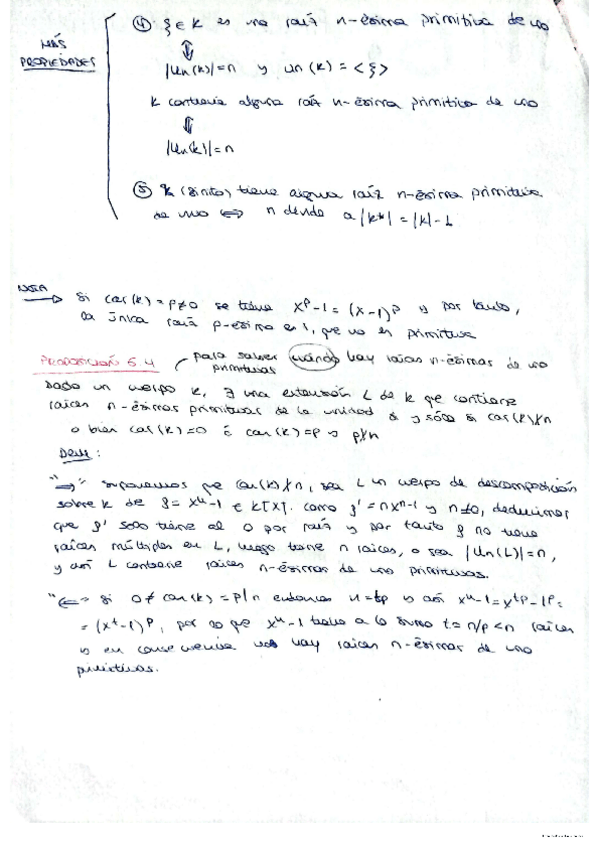 MÁS
PROPIEDADES
④ ξ ∈ K es una raíz n-ésima primitiva de uno
⇕
|Un(K)| = n y Un(K) = <ξ>
K contiene alguna raíz n-ésima primitiva de uno
⇕
|Un(K)| = n
⑤ K (finito) tiene alguna raíz n-ésima primitiva
de uno ⟺ n divide a |K*| = |K| - 1
NOTA
→ Si car(K) = p ≠ 0 se tiene x^p - 1 = (x-1)^p y por tanto,
la única raíz p-ésima es 1, que no es primitiva
PROPOSICIÓN 5.4 para saber cuándo hay raíces n-ésimas de uno
primitivas
Dado un cuerpo K, ∃ una extensión L de K que contiene
raíces n-ésimas primitivas de la unidad si y sólo si car(K)∤n
o bien car(K)=0 ó car(K)=p y p∤n
Dem:
"⇒" suponemos que car(K)∤n, sea L un cuerpo de descomposición
sobre K de f = x^n - 1 ∈ K[X]. Como f' = nx^n-1 y n≠0, deducimos
que f' solo tiene al 0 por raíz y por tanto f no tiene
raíces múltiples en L, luego tiene n raíces, o sea |Un(L)| = n,
y así L contiene raíces n-ésimas de uno primitivas.
"⇐" si 0 ≠ car(K) = p|n entonces n = tp y así x^n - 1 = x^tp - 1^p =
= (x^t - 1)^p, por lo que x^n - 1 tiene a lo sumo t = n/p < n raíces
y en consecuencia hay raíces n-ésimas de uno
primitivas.